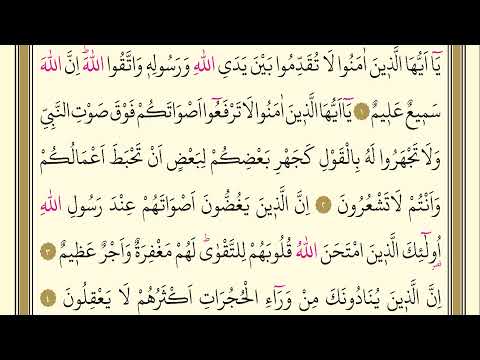 يَٓا اَيُّهَا الَّذ۪ينَ اٰمَنُوا لَا تُقَدِّمُوا بَيْنَ يَدَيِ اللّٰهِ وَرَسُولِه۪ وَاتَّقُوا اللّٰهَۜ اِنَّ اللّٰهَ
سَم۪يعٌ عَل۪يمٌ ﴿١﴾ يَٓا اَيُّهَا الَّذ۪ينَ اٰمَنُوا لَا تَرْفَعُٓوا اَصْوَاتَكُمْ فَوْقَ صَوْتِ النَّبِيِّ
وَلَا تَجْهَرُوا لَهُ بِالْقَوْلِ كَجَهْرِ بَعْضِكُمْ لِبَعْضٍ اَنْ تَحْبَطَ اَعْمَالُكُمْ
وَاَنْتُمْ لَا تَشْعُرُونَ ﴿٢﴾ اِنَّ الَّذ۪ينَ يَغُضُّونَ اَصْوَاتَهُمْ عِنْدَ رَسُولِ اللّٰهِ
اُو۬لٰٓئِكَ الَّذ۪ينَ امْتَحَنَ اللّٰهُ قُلُوبَهُمْ لِلتَّقْوٰىۜ لَهُمْ مَغْفِرَةٌ وَاَجْرٌ عَظ۪يمٌ ﴿٣﴾
اِنَّ الَّذ۪ينَ يُنَادُونَكَ مِنْ وَرَٓاءِ الْحُجُرَاتِ اَكْثَرُهُمْ لَا يَعْقِلُونَ ﴿٤﴾